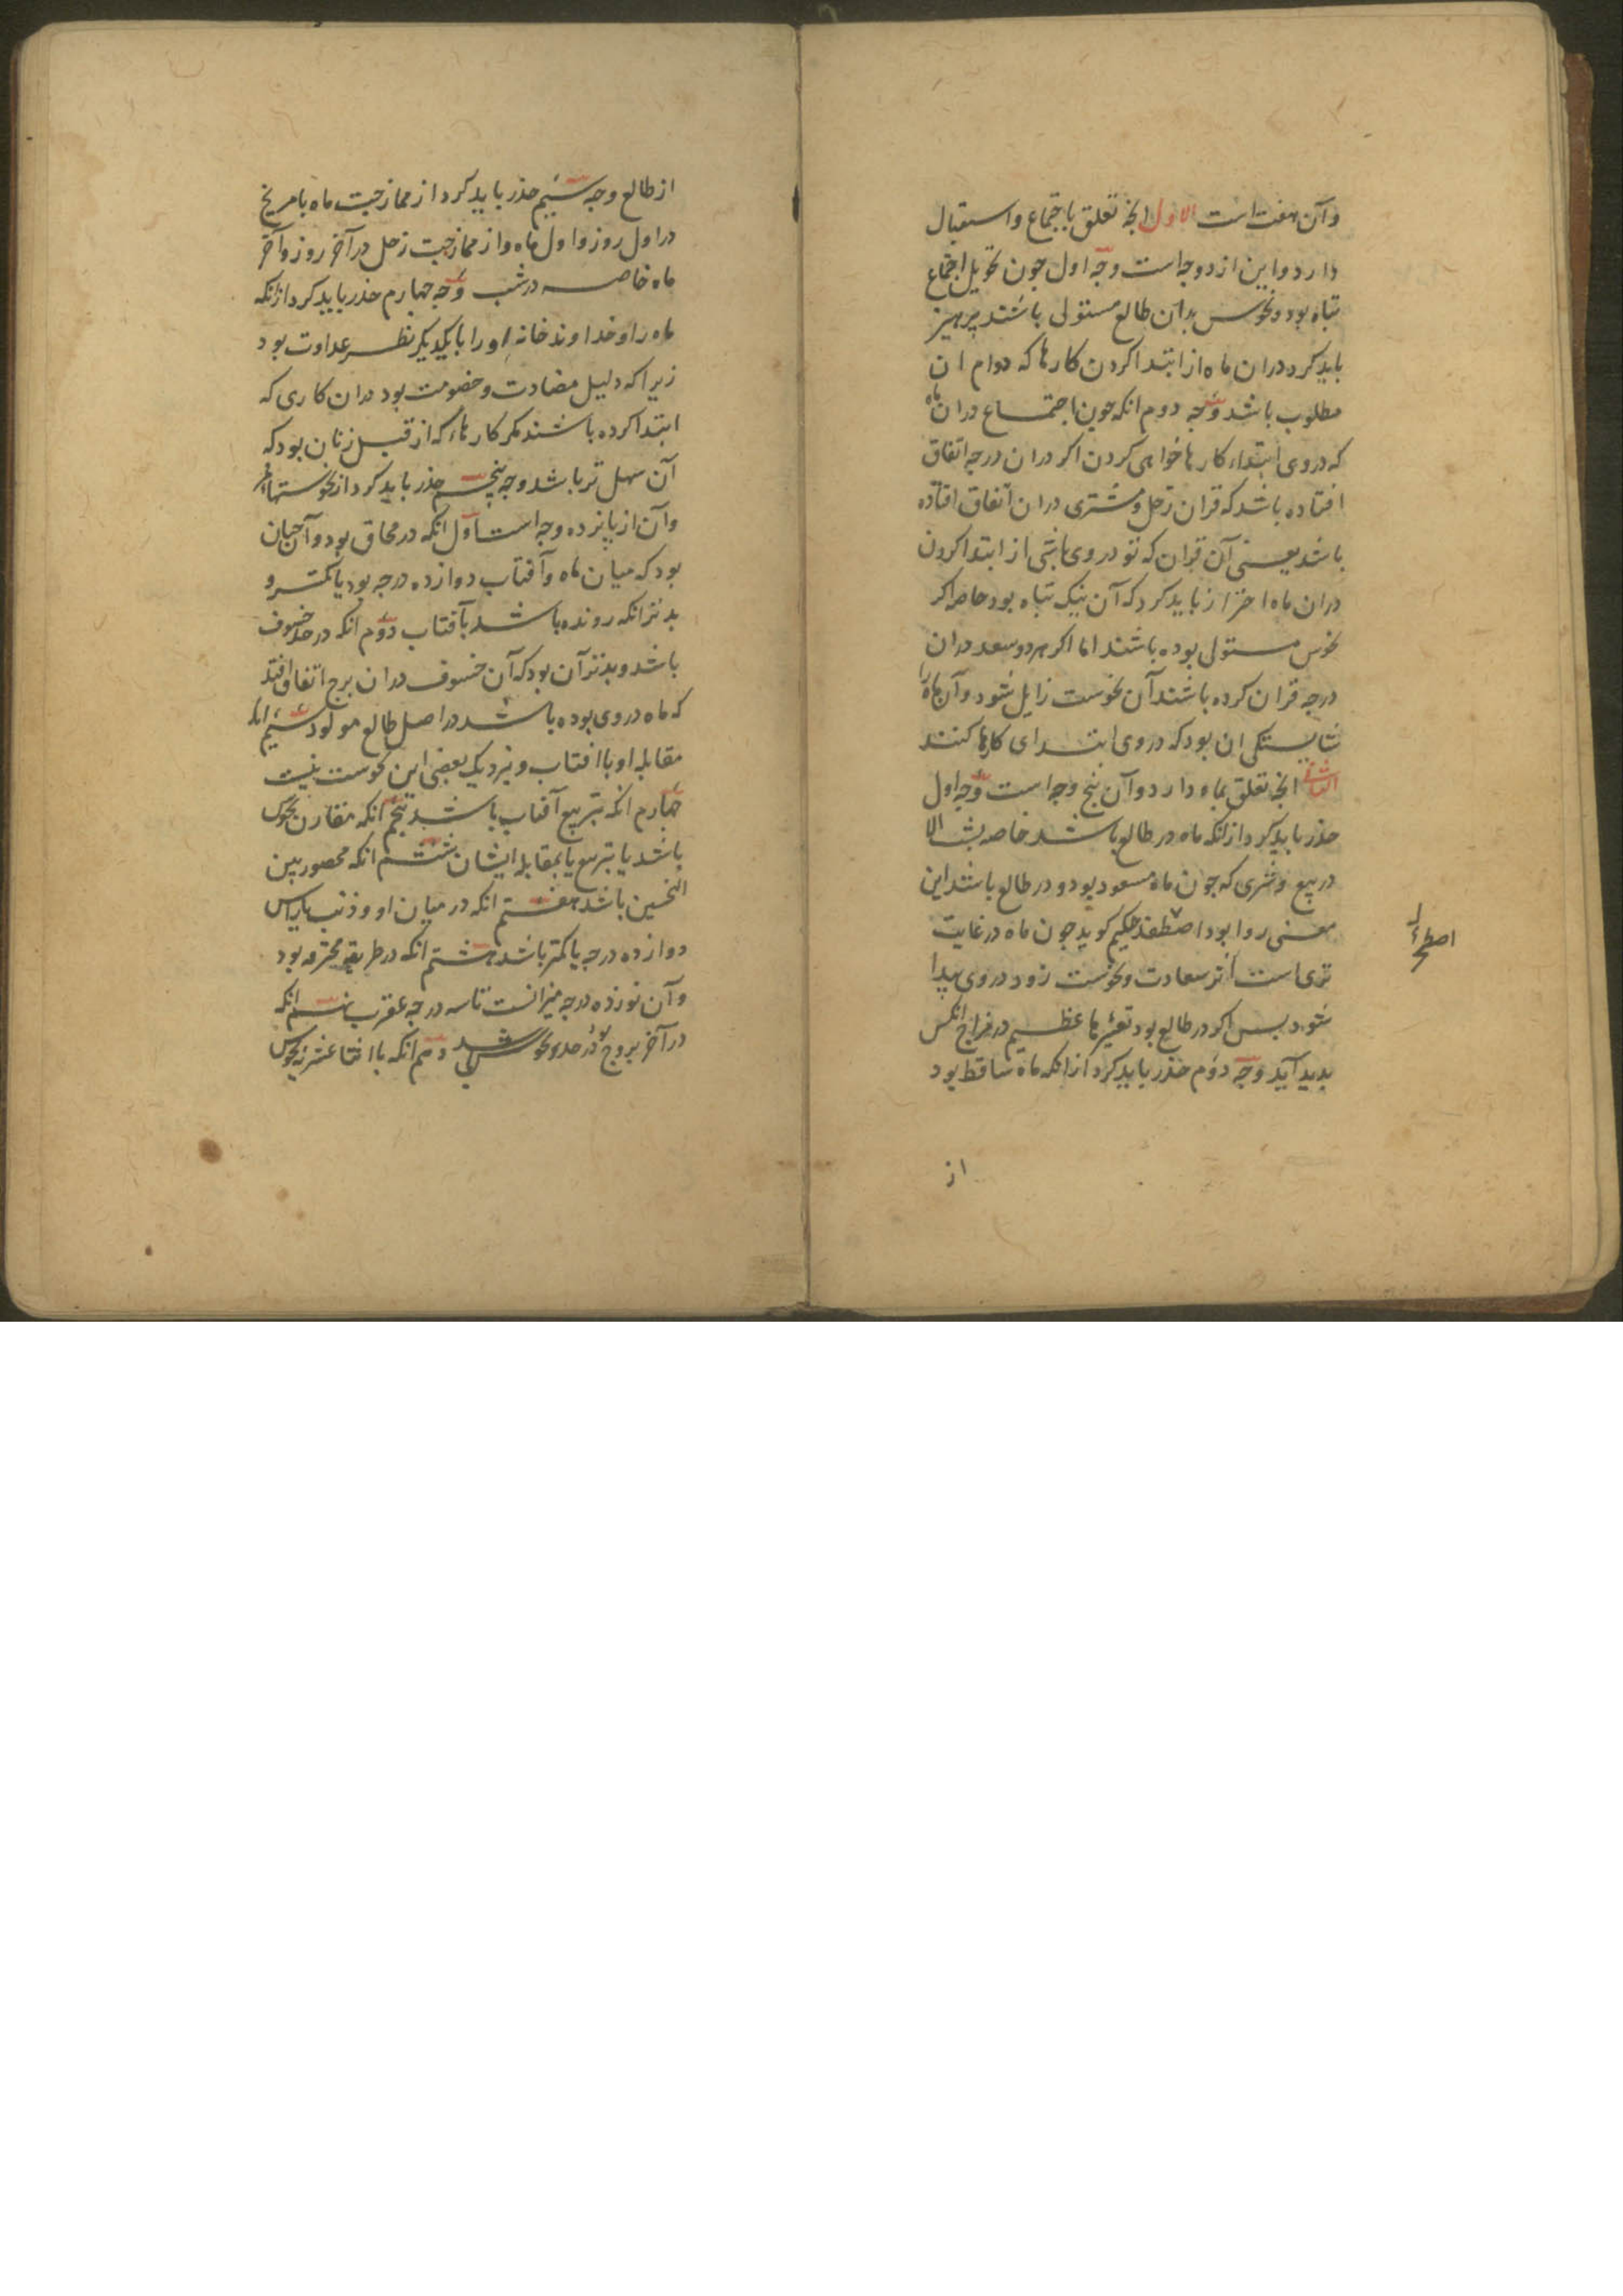 وآن هفت است الاول انچه تعلق باجتماع واستقبال
دارد واین از دو وجه است وجه اول چون تحویل اجتماع
تباه بود ونحوس بران طالع مستولی باشند پرهیز
باید کرد دران ماه از ابتدا کردن کارها که دوام ان
مطلوب باشد وجه دوم انکه چون اجتماع دران ماه
که دروی ابتداء کارها خواهی کردن اکر دران درجه اتفاق
افتاده باشد که قران زحل ومشتری دران اتفاق افتاده
باشد یعنی آن قران که تو دروی باشی از ابتدا کردن
دران ماه احتراز باید کرد که آن نیک تباه بود خاصه اکر
نحوس مستولی بوده باشند اما اکر هر دو سعد دران
درجه قران کرده باشند آن نحوست زایل شود وآن ماه را
شایستکی ان بود که دروی ابتدای کارها کنند
الثانی انچه تعلق بماه دارد وآن پنج وجه است وجه اول
حذر باید کرد ازانکه ماه در طالع باشد خاصه بشب الا
در بیع وشری که چون ماه مسعود بود ودر طالع باشد این
معنی روا بود حکیم کوید چون ماه در غایت
تری است اثر سعادت ونحوست زود دروی پیدا
شود پس اکر در طالع بود تغیرها عظیم در مزاج انکس
پدید آید وجه دوم حذر باید کرد ازانکه ماه ساقط بود
از
از طالع وجه سیم حذر باید کرد از ممازجت ماه با مریخ
در اول روز واول ماه واز ممازجت زحل در آخر روز وآخر
ماه خاصه در شب وجه چهارم حذر باید کرد ازانکه
ماه را وخداوند خانه اورا بایکدیکر نظر عداوت بود
زیرا که دلیل مضادت وخصومت بود دران کاری که
ابتدا کرده باشند مکر کارهاء که از قبل زنان بود که
آن سهل تر باشد وجه پنجم حذر باید کرد از نحوستهاء قمر
وآن از پانزده وجه است اول انکه در محاق بود وآن چنان
بود که میان ماه وآفتاب دوازده درجه بود یا کمتر و
بدتر انکه رونده باشد بآفتاب دوم انکه در حد خسوف
باشد وبدتر آن بود که آن خسوف دران برج اتفاق افتد
که ماه دروی بوده باشد در اصل طالع مولود سیم انکه
مقابله او با افتاب ونزدیک بعضی این نحوست نیست
چهارم انکه بتربیع آفتاب باشد پنجم انکه مقارن نحوس
باشد یا بتربیع یا بمقابله ایشان ششم انکه محصور بین
النحسین باشد هفتم انکه در میان او وذنب یا راس
دوازده درجه یا کمتر باشد هشتم انکه در طریقه محترقه بود
وآن نوزده درجه میزانست تا سه درجه عقرب نهم انکه
در آخر بروج بود در حدود نحوس دهم انکه با اثنا عشریه نحوس